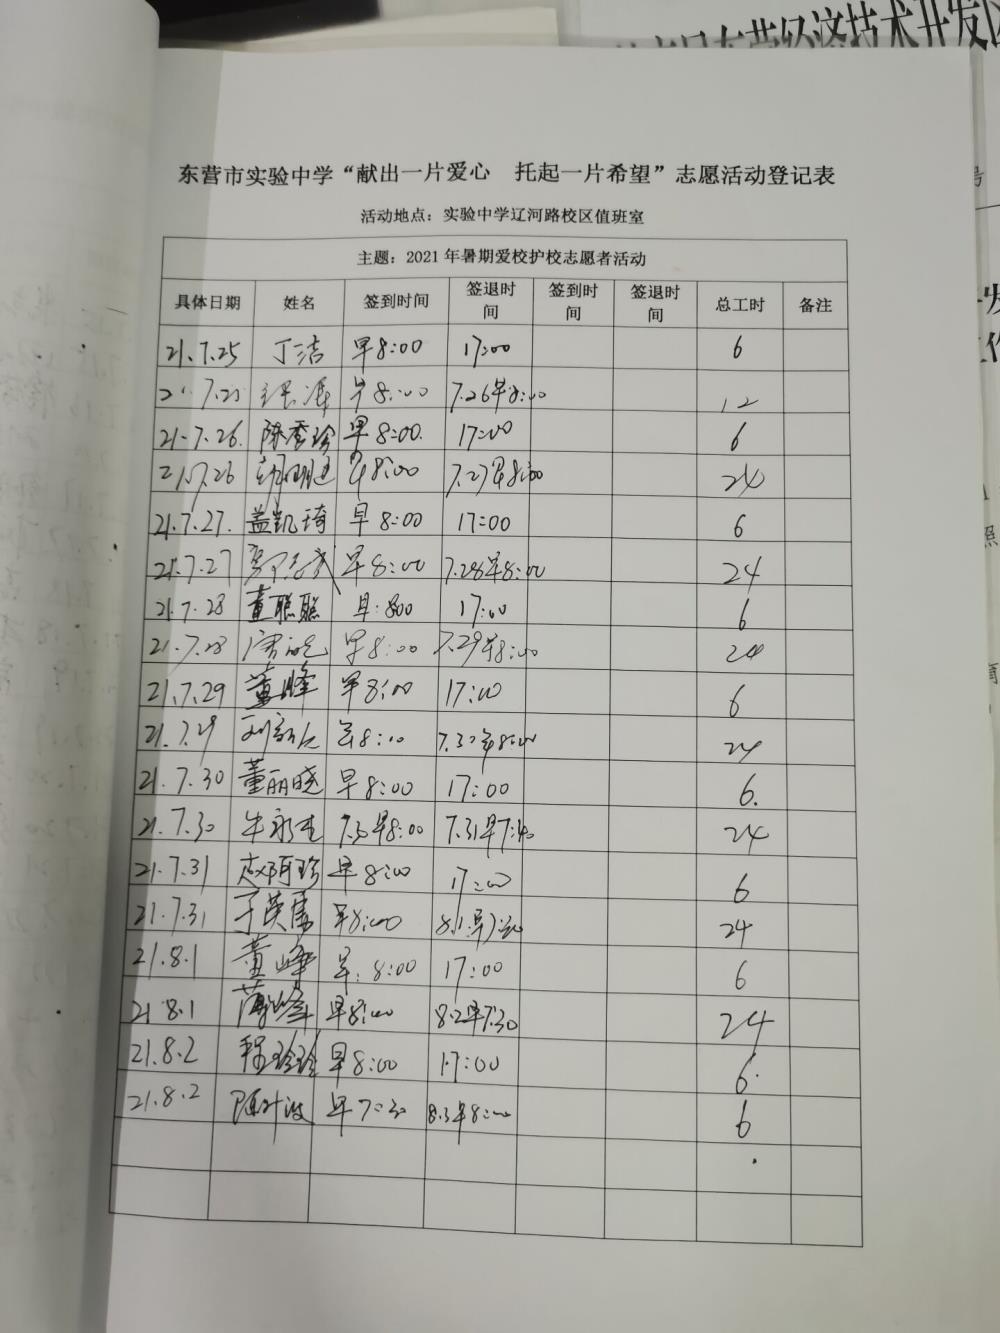 东营经济技术开发区
东营市实验中学“献出一片爱心 托起一片希望”志愿活动登记表
活动地点：实验中学辽河路校区值班室
主题：2021年暑期爱校护校志愿者活动
具体日期 姓名 签到时间 签退时间 签到时间 签退时间 总工时 备注
21.7.25 丁洁 早8:00 17:00 6
早8:00 7.26早8:00 12
21.7.26. 陈秀珍 早8:00. 17:00 6
21.7.26 早8:00 7.27早8:00 24
21.7.27. 盖凯琦 早8:00 17:00 6
21.7.27 早8:00 7.28早8:00 24
21.7.28 董聪聪 早:800 17:00 6
21.7.28 早8:00 7.29早8:00 24
21.7.29 董峰 早8:00 17:00 6
21.7.29 7.30早8:00 24
21.7.30 董丽晓 早8:00 17:00 6.
21.7.30 7.30早8:00 7.31早7:40 24
21.7.31 早8:00 17:00 6
21.7.31 早8:00 24
21.8.1 董峰 早:8:00 17:00 6
21 8.1 早8:00 8.2早7:30 24
21.8.2 程玲玲 早8:00 17:00 6.
21.8.2 早7:30 8.3早8:00 6